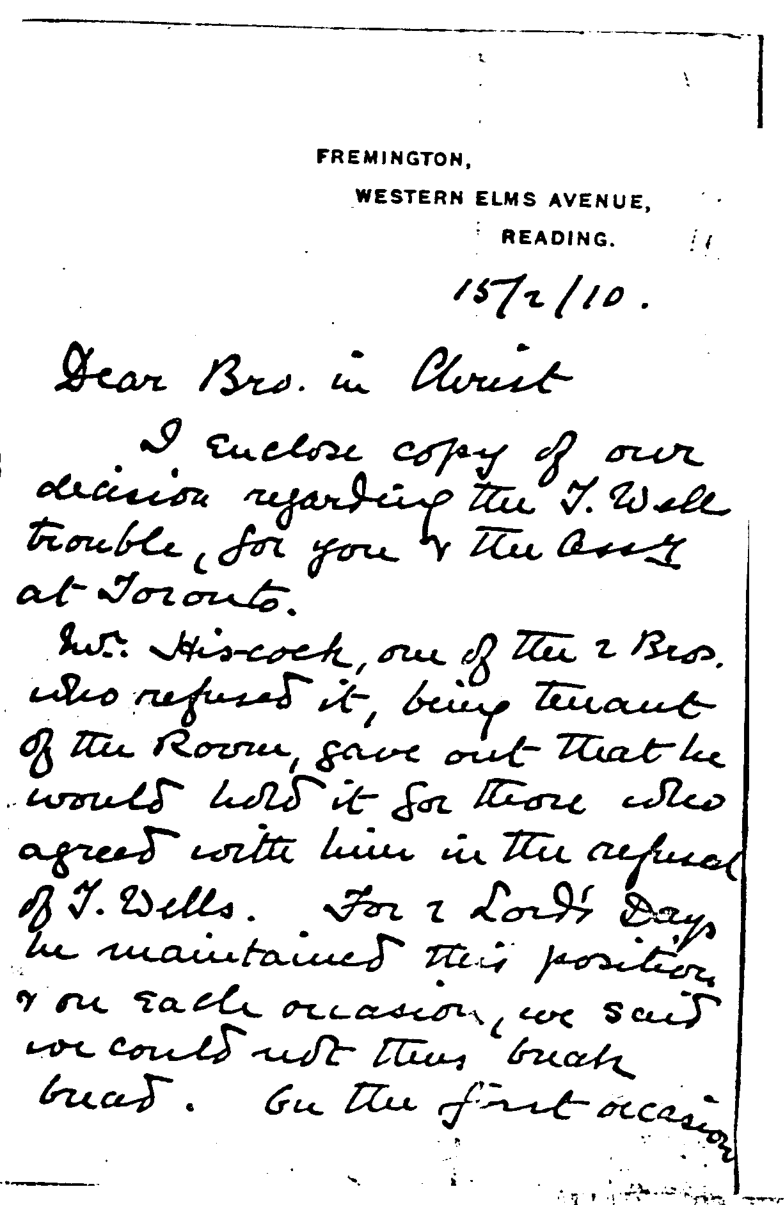 FREMINGTON,
WESTERN ELMS AVENUE,
READING.
15/2/10.
Dear Bro. in Christ
I enclose copy of our
decision regarding the T. Well
trouble, for you & the Assy
at Toronto.
Mr. Hiscock, one of the 2 Bros.
who refused it, being tenant
of the Room, gave out that he
would hold it for those who
agreed with him in the refusal
of T. Wells. For 2 Lord's Days
he maintained this position
& on each occasion, we said
we could not thus break
bread. On the first occasion